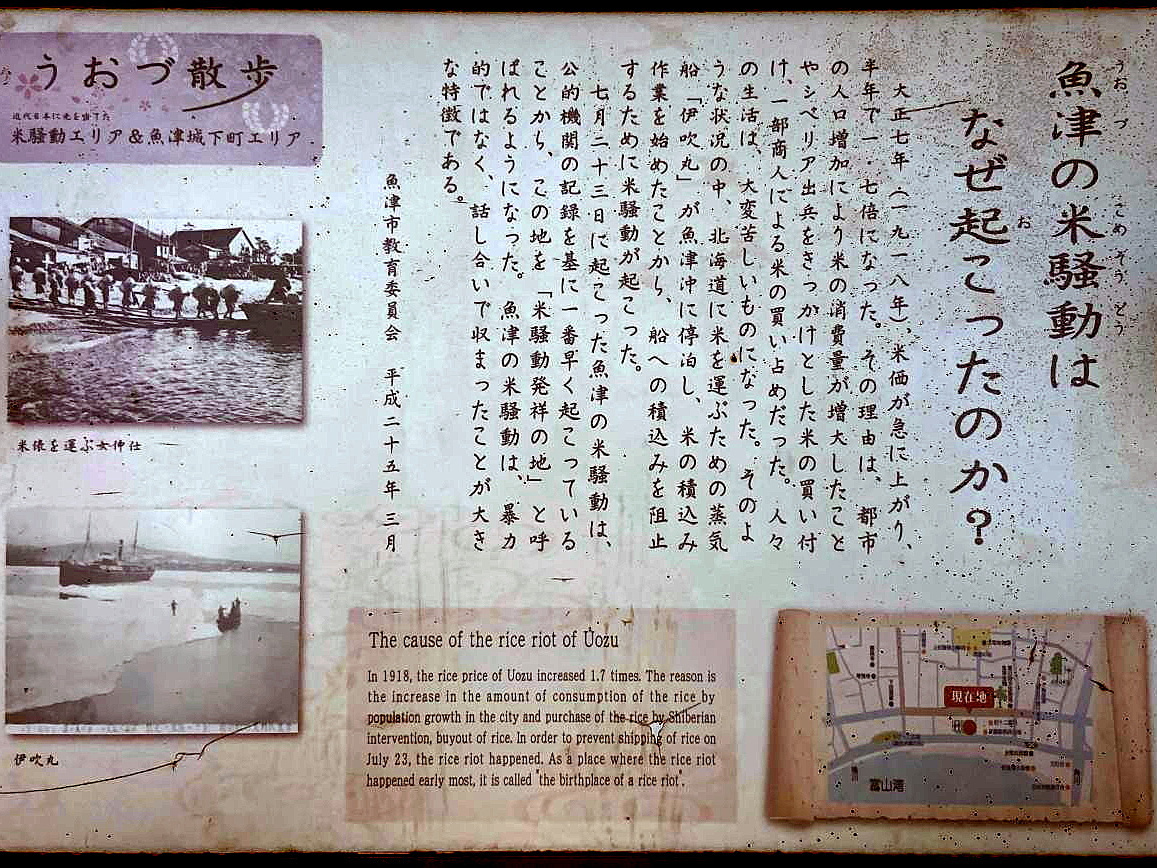 魚津の米騒動は
なぜ起こったのか?
うおづ
こめそうどう
お
大正七年(一九一八年)、米価が急に上がり、
半年で一・七倍になった。その理由は、都市
の人口増加により米の消費量が増大したこと
やシベリア出兵をきっかけとした米の買い付
け、一部商人による米の買い占めだった。人々
の生活は、大変苦しいものになった。そのよ
うな状況の中、北海道に米を運ぶための蒸気
船「伊吹丸」が魚津沖に停泊し、米の積込み
作業を始めたことから、船への積込みを阻止
するために米騒動が起こった。
七月二十三日に起こった魚津の米騒動は、
公的機関の記録を基に一番早く起こっている
ことから、この地を「米騒動発祥の地」と呼
ばれるようになった。魚津の米騒動は、暴力
的ではなく、話し合いで収まったことが大き
な特徴である。
魚津市教育委員会 平成二十五年 三月
うおづ散歩
近代日本に光を当てた
米騒動エリア&魚津城下町エリア
米俵を運ぶ女仲仕
伊吹丸
The cause of the rice riot of Uozu
In 1918, the rice price of Uozu increased 1.7 times. The reason is
the increase in the amount of consumption of the rice by
population growth in the city and purchase of the rice by Shiberian
intervention, buyout of rice. In order to prevent shipping of rice on
July 23, the rice riot happened. As a place where the rice riot
happened early most, it is called "the birthplace of a rice riot".
現在地
富山湾